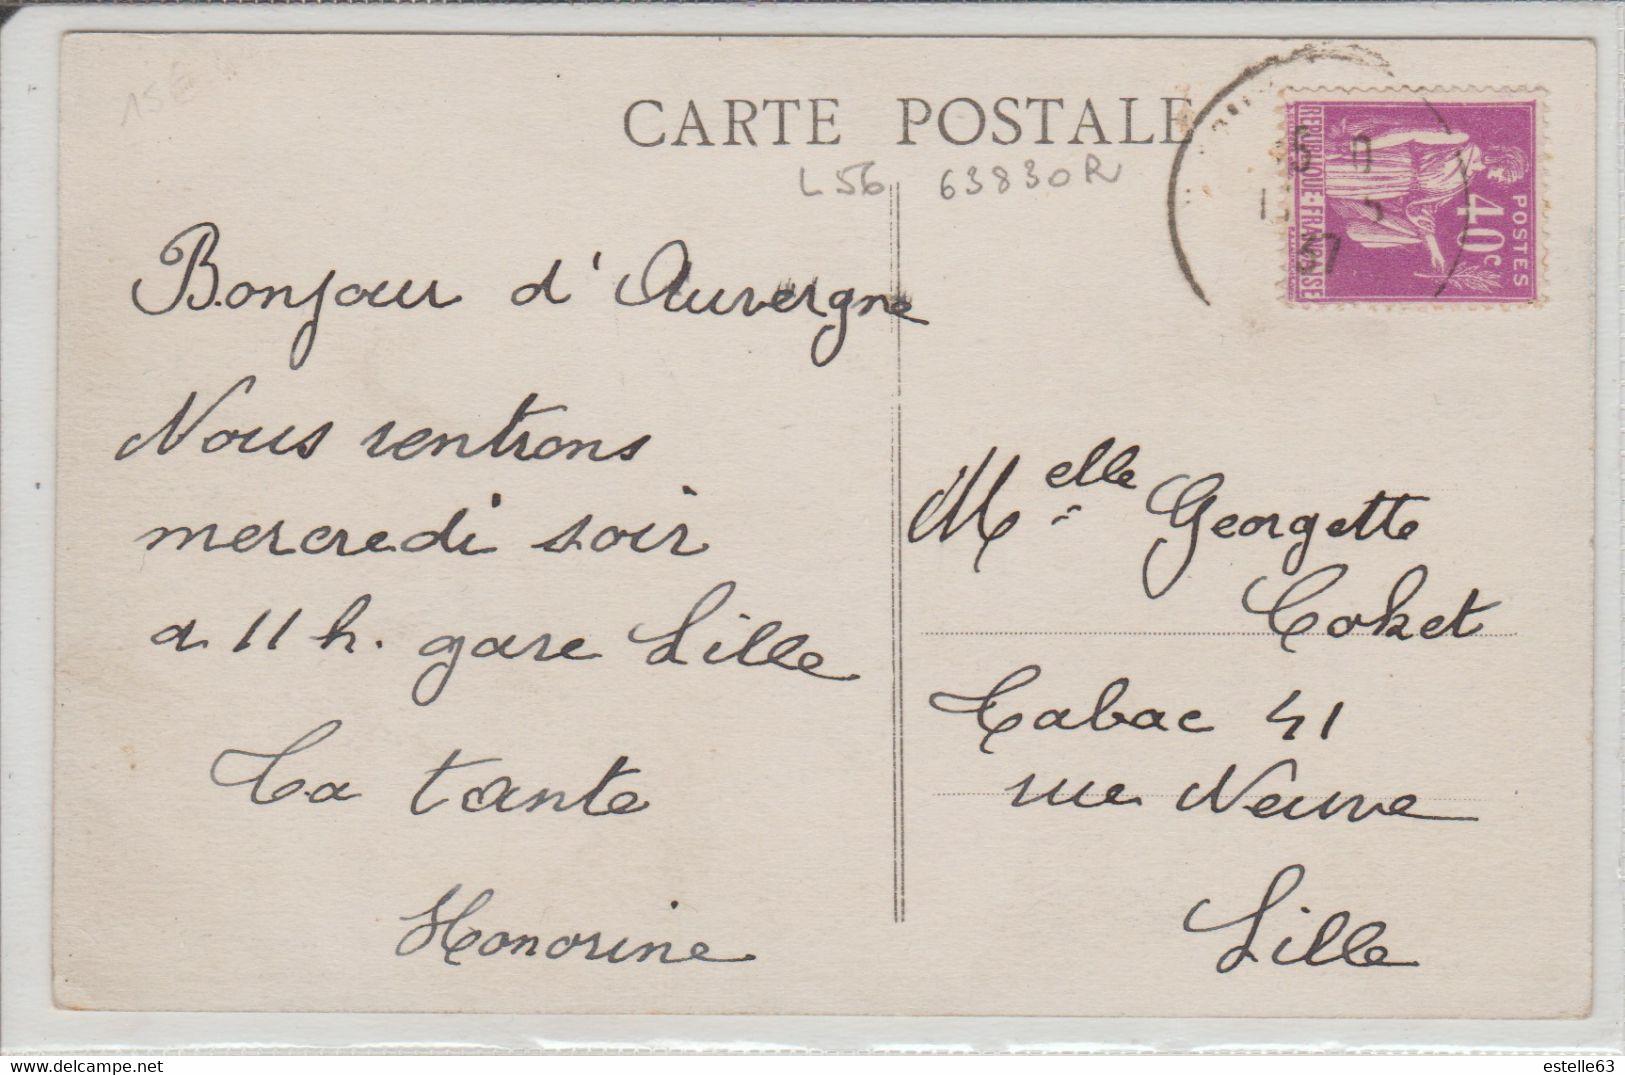 15€
CARTE POSTALE
L56 63830R
REPUBLIQUE·FRANÇAISE
POSTES
40c
37
Bonjour d'Auvergne
Nous rentrons
mercredi soir
a 11 h. gare Lille
Ta tante
Honorine
Melle Georgette
Coket
Tabac 41
rue Neuve
Lille
estelle63